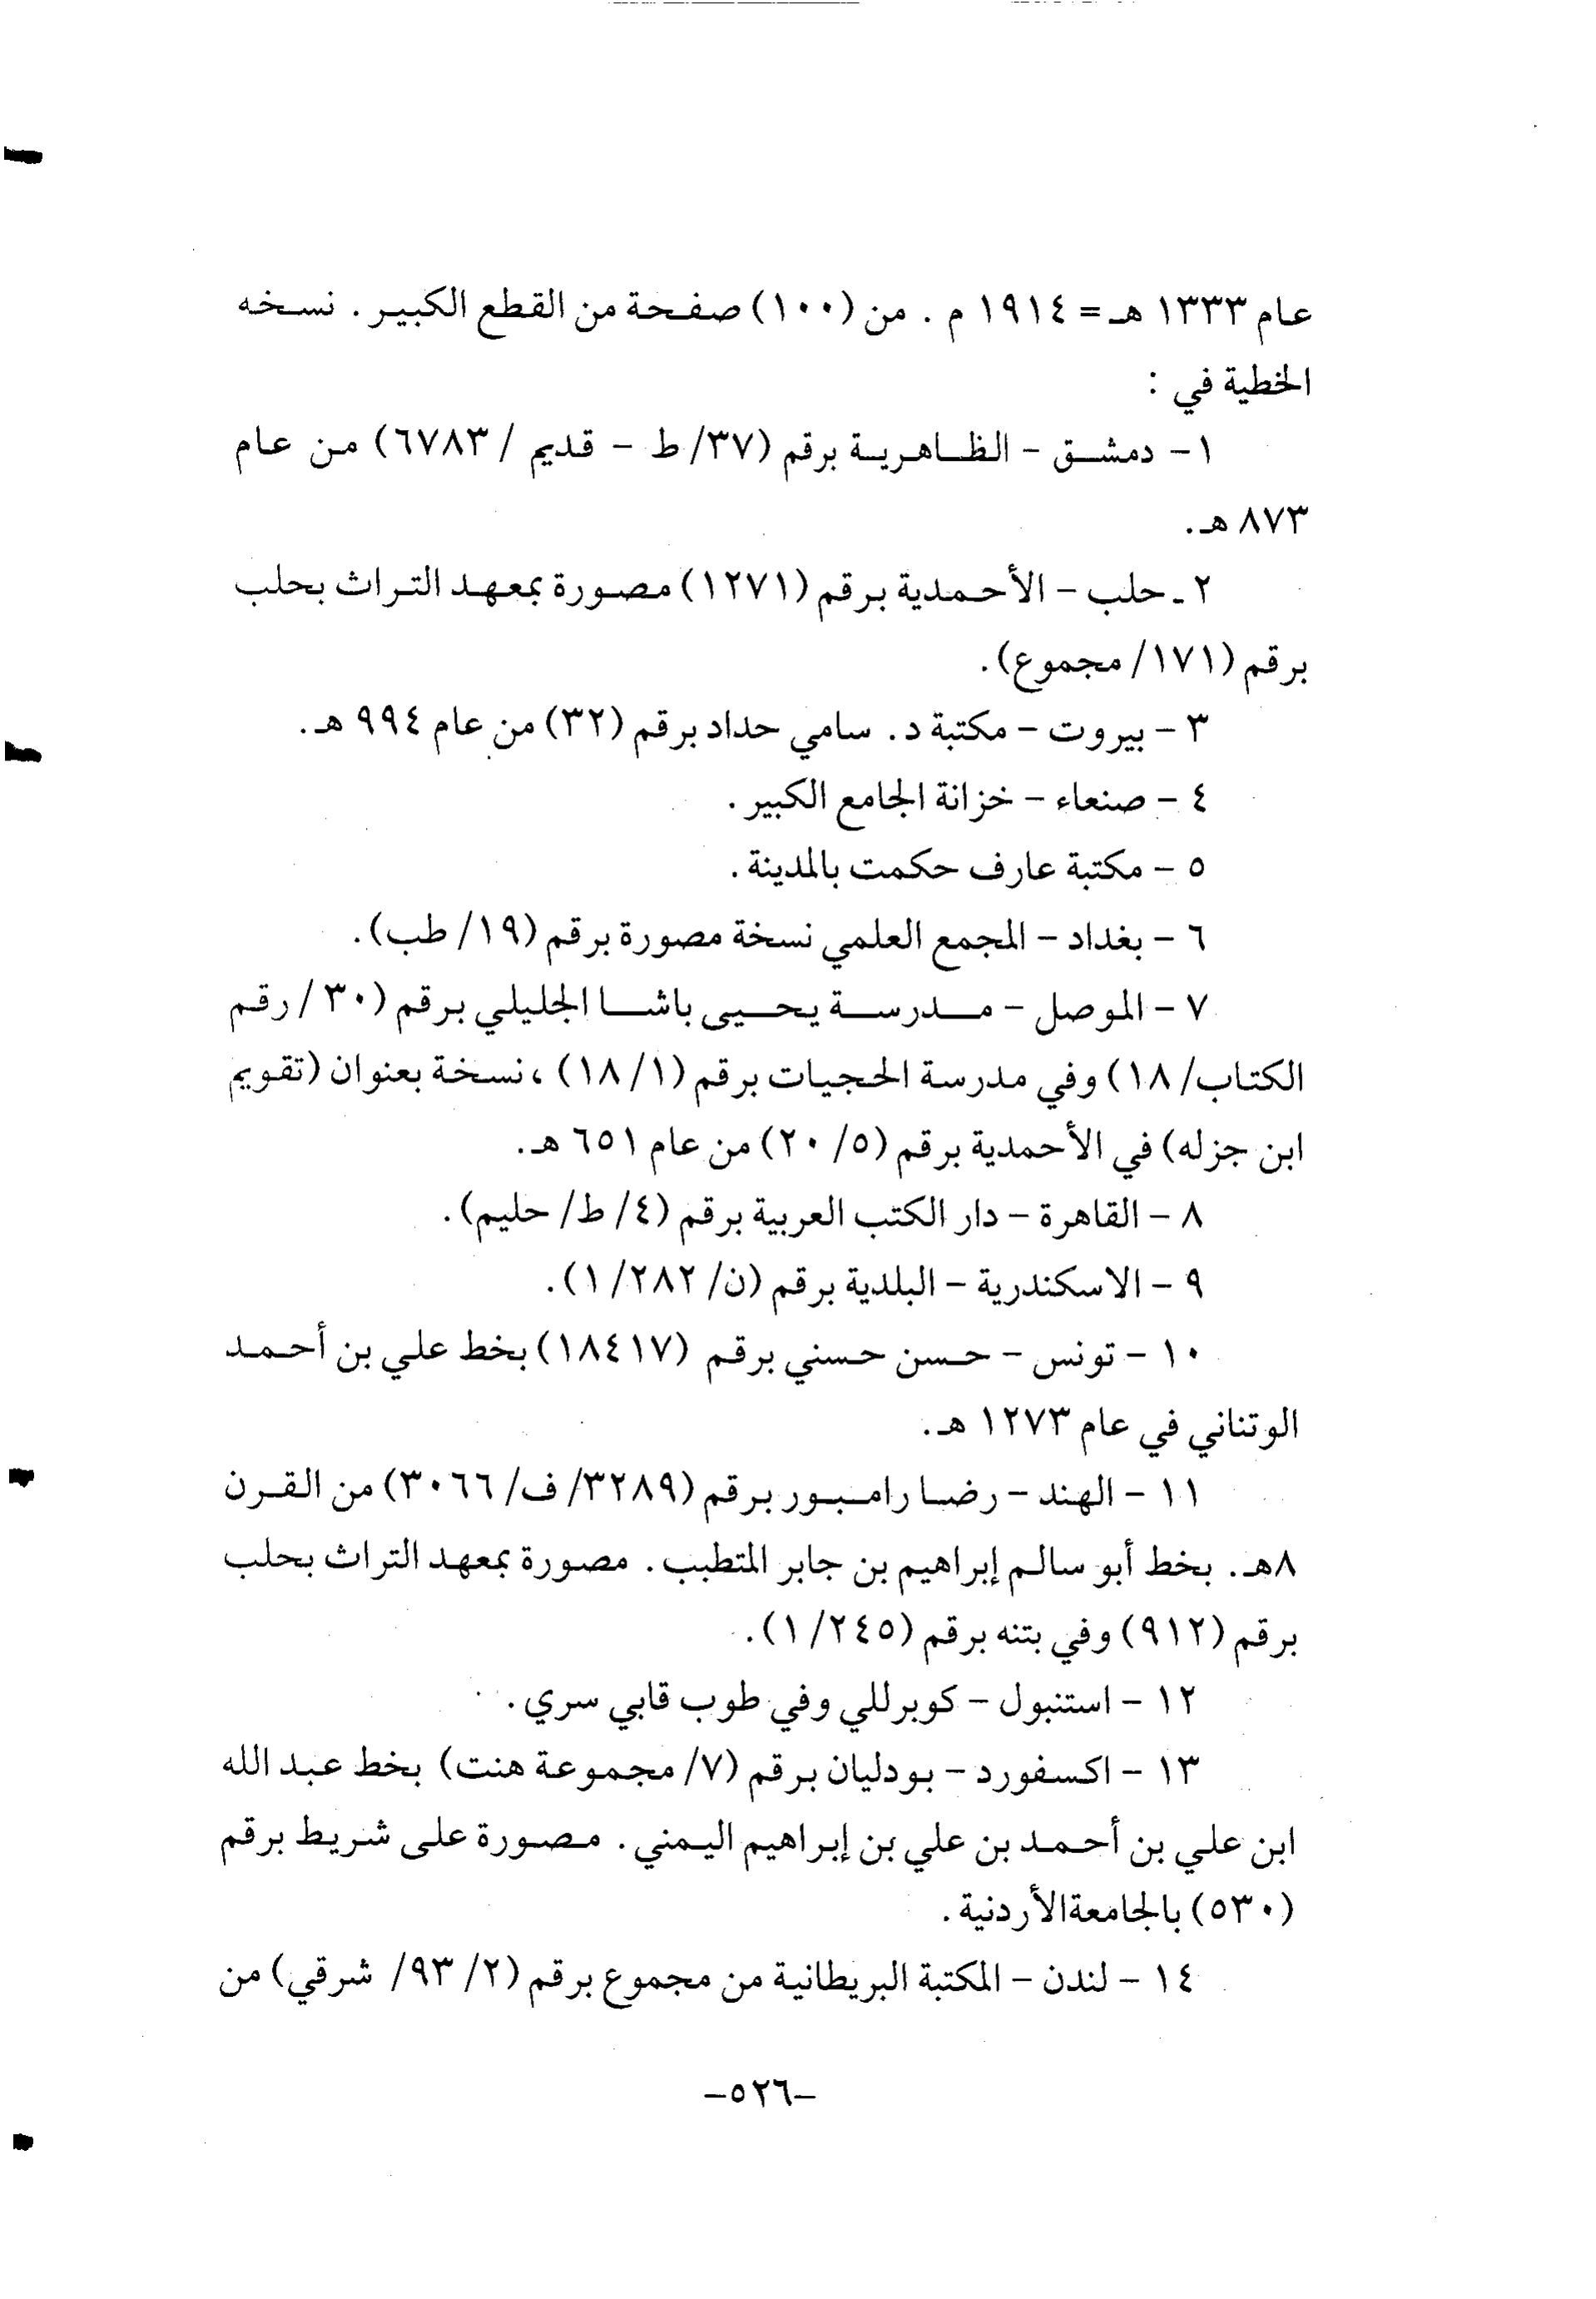 عام ١٣٣٣ هـ = ١٩١٤ م . من (١٠٠) صفحة من القطع الكبير . نسخه
الخطية في :
١ - دمشق - الظاهرية برقم (٣٧/ ط - قديم / ٦٧٨٣) من عام
٨٧٣ هـ.
٢ـ حلب - الأحمدية برقم (١٢٧١) مصورة بمعهد التراث بحلب
برقم (١٧١/ مجموع).
٣ - بيروت - مكتبة د. سامي حداد برقم (٣٢) من عام ٩٩٤ هـ.
٤ - صنعاء - خزانة الجامع الكبير.
٥ - مكتبة عارف حكمت بالمدينة.
٦ - بغداد - المجمع العلمي نسخة مصورة برقم (١٩/ طب).
٧ - الموصل - مدرسة يحيى باشا الجليلي برقم (٣٠/ رقم
الكتاب/ ١٨) وفي مدرسة الحجيات برقم (١٨/١) ، نسخة بعنوان (تقويم
ابن جزله) في الأحمدية برقم (٢٠/٥) من عام ٦٥١ هـ.
٨ - القاهرة - دار الكتب العربية برقم (٤/ ط/ حليم).
٩ - الاسكندرية - البلدية برقم (ن/ ١/٢٨٢).
١٠ - تونس - حسن حسني برقم (١٨٤١٧) بخط علي بن أحمد
الوتناني في عام ١٢٧٣ هـ.
١١ - الهند - رضا رامبور برقم (٣٢٨٩/ ف/ ٣٠٦٦) من القرن
٨هـ. بخط أبو سالم إبراهيم بن جابر المتطبب. مصورة بمعهد التراث بحلب
برقم (٩١٢) وفي بتنه برقم (١/٢٤٥).
١٢ - استنبول - كوبرللي وفي طوب قابي سري.
١٣ - اكسفورد - بودليان برقم (٧/ مجموعة هنت) بخط عبد الله
ابن علي بن أحمد بن علي بن إبراهيم اليمني. مصورة على شريط برقم
(٥٣٠) بالجامعة الأردنية.
١٤ - لندن - المكتبة البريطانية من مجموع برقم (٢/ ٩٣/ شرقي) من
-٥٢٦-